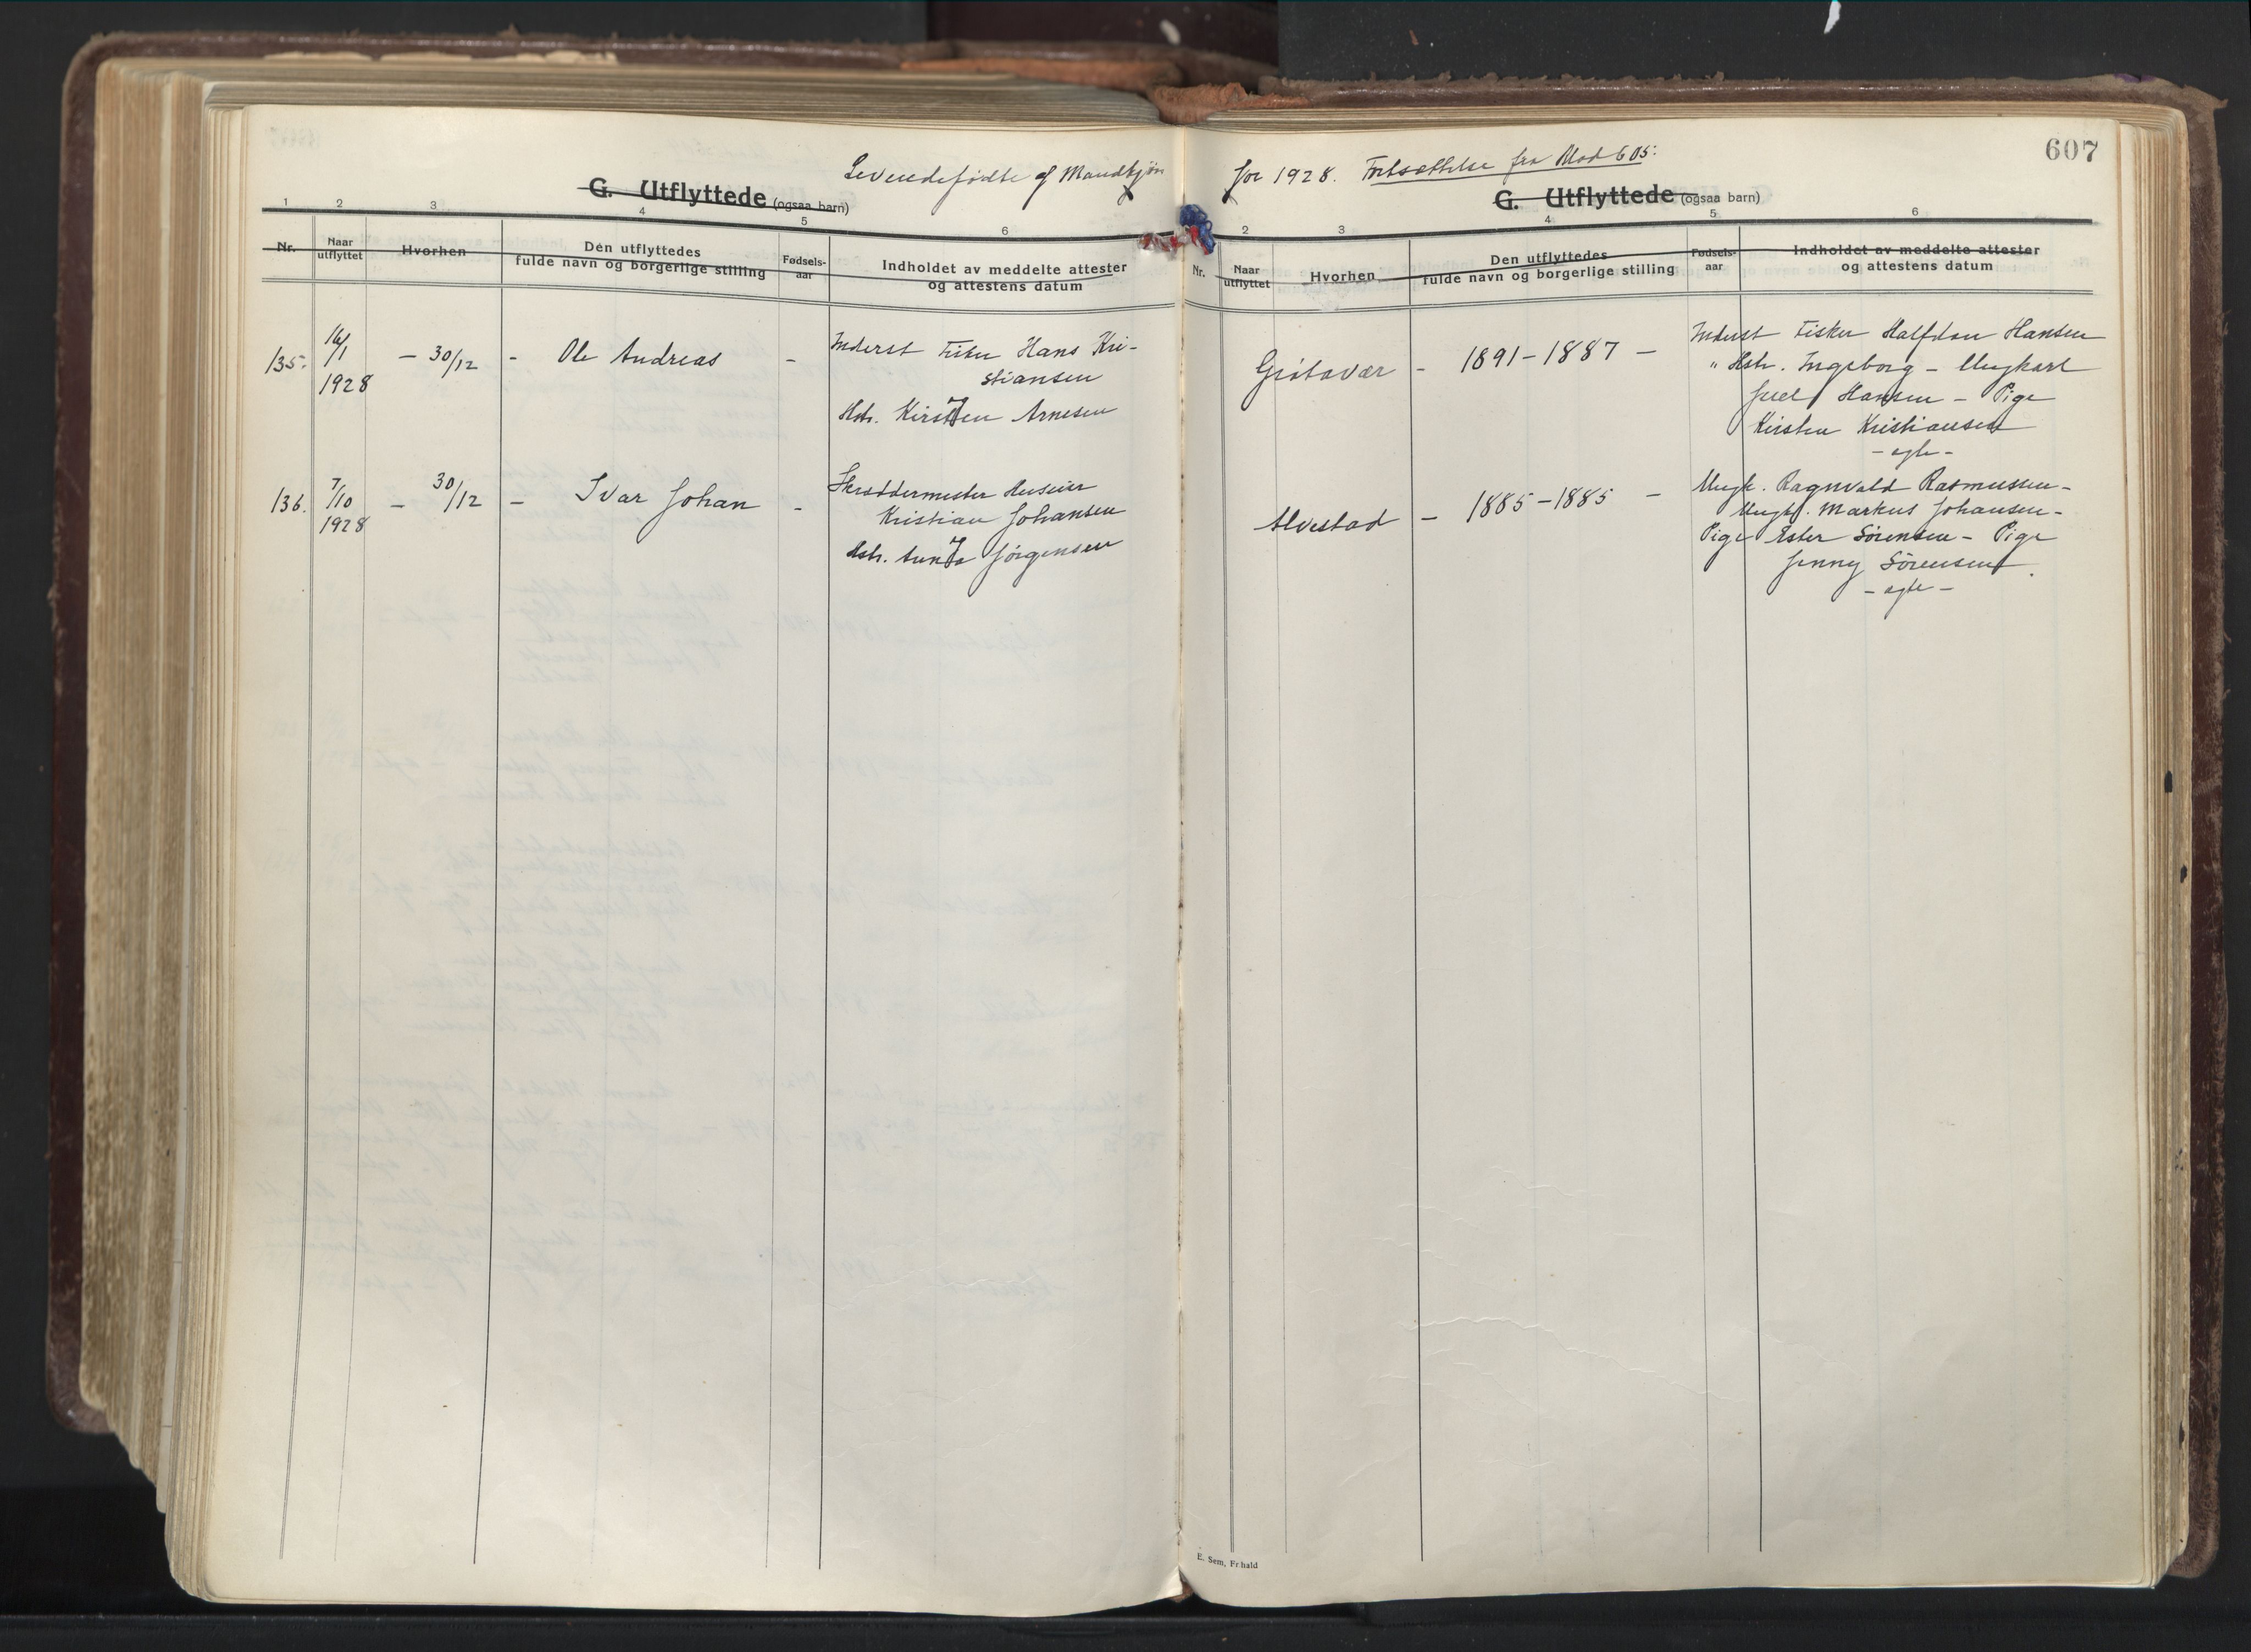 Levendefødte af Mandkjøn
G. Utflyttede (ogsaa barn)
1 2 3 4 5 6
Nr.
Naar
utflyttet
Hvorhen
Den utflyttedes
fulde navn og borgerlige stilling
Fødsels-
aar
Indholdet av meddelte attester
og attestens datum
135.
16/1
1928
- 30/12 - Ole Andreas -
Inderst Fisker Hans Kri-
stiansen
Hstr. Kirsten Arnesen
136.
7/10
1928
- 30/12 - Ivar Johan -
Skræddermester Huseier
Kristian Johansen
Hstr. Anna Jørgensen
607
for 1928. Fortsættelse fra Blad 605.
G. Utflyttede (ogsaa barn)
2 3 4 5 6
Nr.
Naar
utflyttet
Hvorhen
Den utflyttedes
fulde navn og borgerlige stilling
Fødsels-
aar
Indholdet av meddelte attester
og attestens datum
Grøtavær - 1891-1887 -
Inderst Fisker Halfdan Hansen
" Hstr. Ingeborg - Ungkarl
Hansen - Pige
Kirsten Kristiansen
- egte -
Alvestad - 1885-1885 -
Ungk. Ragnvald Rasmussen -
Ungk. Markus Johansen -
Pige Ester Sørensen - Pige
Jenny Sørensen.
- egte -
E. Sem, Fr.hald